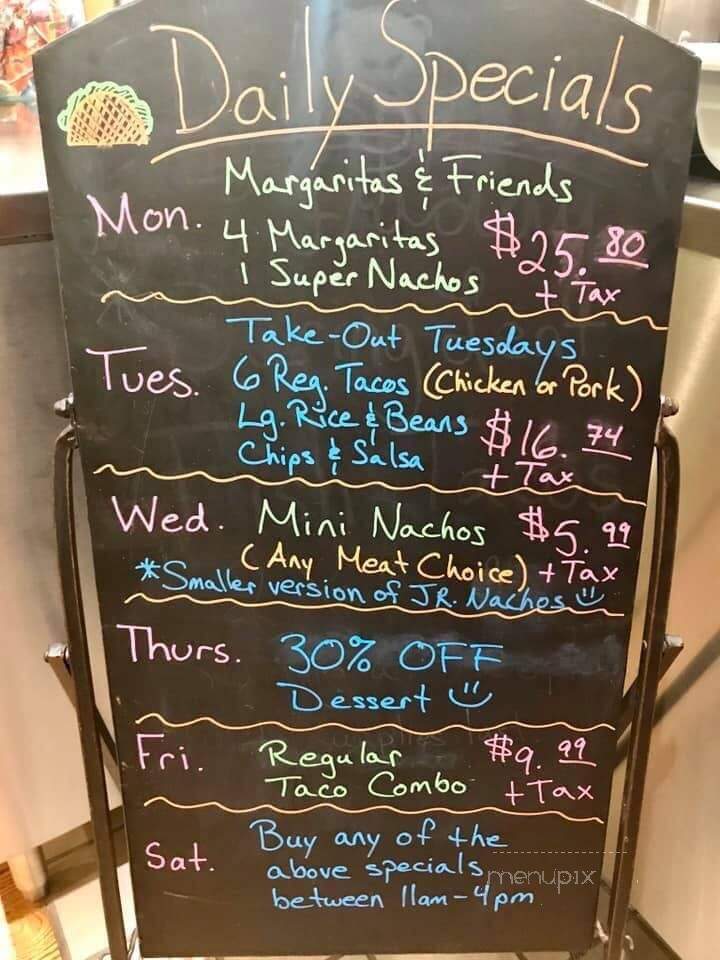 Daily Specials
Mon. Margaritas & Friends
4 Margaritas
1 Super Nachos
$25.80
+ Tax
Tues. Take-Out Tuesdays
6 Reg. Tacos (Chicken or Pork)
Lg. Rice & Beans
Chips & Salsa
$16.74
+ Tax
Wed. Mini Nachos $5.99
(Any Meat Choice) + Tax
*Smaller version of JR. Nachos
Thurs. 30% OFF
Dessert
Fri. Regular $9.99
Taco Combo + Tax
Sat. Buy any of the
above specials
between 11am-4pm
menupix